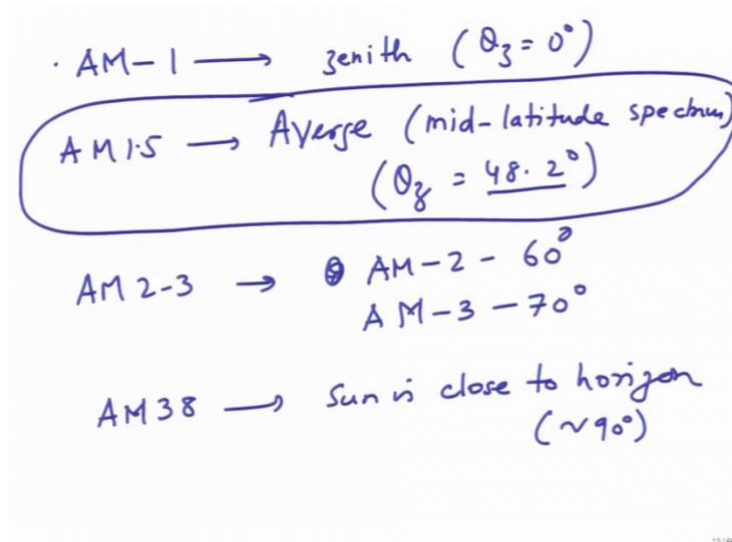 · AM-1 → zenith (θz = 0°)
AM1.5 → Averge (mid-latitude spectrum)
(θz = 48.2°)
AM2-3 → AM-2 - 60°
AM-3 - 70°
AM38 → Sun is close to horizon
(~90°)